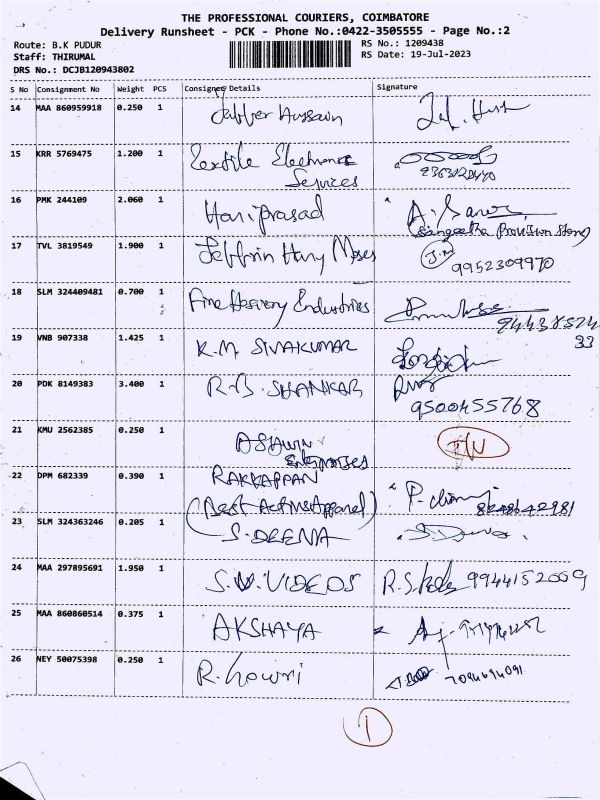 THE PROFESSIONAL COURIERS, COIMBATORE
Delivery Runsheet - PCK - Phone No.:0422-3505555 - Page No.:2
Route: B.K PUDUR RS No.: 1209438
Staff: THIRUMAL RS Date: 19-Jul-2023
DRS No.: DCJB120943802
S No Consignment No Weight PCS Consignee Details Signature
14 MAA 860959918 0.250 1 Jabber Hussain
15 KRR 5769475 1.200 1 Textile Electronic
Services
16 PMK 244109 2.060 1 Hariprasad
Sangeetha Provision Store
17 TVL 3819549 1.900 1 Jebbrin Hary Moses J.M
9952309970
18 SLM 324409481 0.700 1 Fine Hosiery Industries
94438524
33
19 VNB 907338 1.425 1 K.M. SIVAKUMAR
20 PDK 8149383 3.400 1 R.B. SHANKAR
9500455768
21 KMU 2562385 0.250 1 ASHWIN
Enterprises
22 DPM 682339 0.390 1 RAKKAPPAN
(Best Active Apparel) 8248642981
23 SLM 324363246 0.205 1 S. DEENA
24 MAA 297895691 1.950 1 S.V. VIDEOS 9944152009
25 MAA 860860514 0.375 1 AKSHAYA
26 NEY 50075398 0.250 1 R. Gowri 7094694091
1